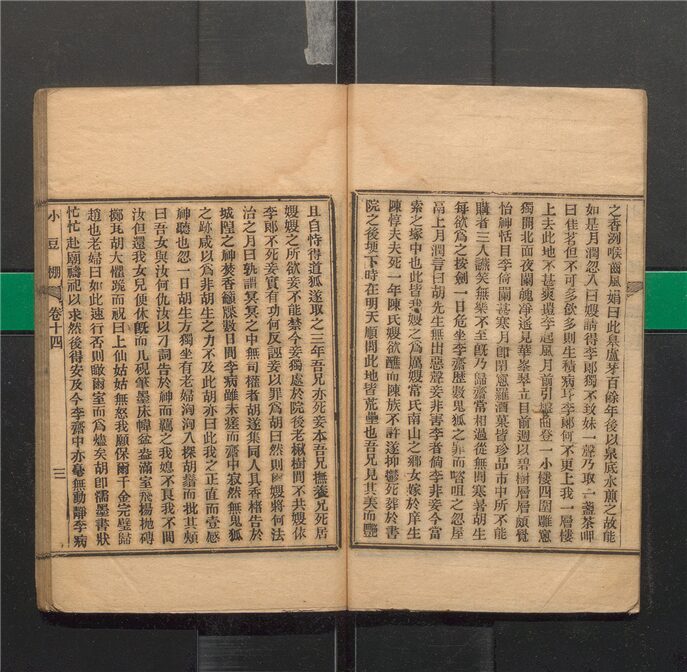 之香冽喉齒風娟曰此臯盧芽百餘年後以泉底水煎之故能
如是月潤忽入曰嫂請得李郎獨不致妹一聲乃取一盞茶呷
曰佳茗但不可多飲多則生積病耳李郎何不更上我一層樓
上去此地不甚爽遭李起風月前引盤曲登一小樓四圍雕窻
獨開北面夜闌魄凈遙見華峯翠立目前週以碧樹層層頗覺
怡神恬目李倚闌甚寒月卽閉窻羅酒菓皆珍品市中所不能
購者三人讌笑無樂不至旣乃歸齋常相過從無間寒暑胡生
每欲爲之按劍一日危坐李齋歷數鬼狐之罪而詈咀之忽屋
鬲上月潤言曰胡先生無出惡聲妾非害李者倘李非妾今當
索之塚中也此皆我嫂之爲厲嫂常氏南山之鄉女嫁於庠生
陳惇夫夫死一年陳氏嫂欲醮而陳族不許遂抑鬱死葬於書
院之後埂下時在明天順間此地皆荒壘也吾兄見其美而豔
且自恃得道狐遂取之三年吾兄亦死妾本吾兄撫養兄死居
嫂嫂之所欲妾不能禁今妾獨處於院後老楸樹間不共嫂依
李郎不死妾實有功何反誣妾以罪爲胡曰然則爾嫂將何法
治之月曰孰謂冥冥之中無司權者胡遂集同人具香格告於
城隍之神焚香籲牒數日間李病雖未瘥而齋中寂然無鬼狐
之跡咸以爲非胡生之力不及此胡亦曰此我之正直而壹感
神聽也忽一日胡生方獨坐有老婦洶洶入探胡鬍而批其頰
曰吾女與汝何仇汝以刁詞告於神而羈之我媳不良我不問
汝但還我女兒便休旣而几硯筆墨床幃盆盎滿室飛揚拋磚
擲瓦胡大懼跪而祝曰上仙姑姑無怒我願保爾千金完璧歸
趙也老婦曰如此速行否則瞰爾室而爲爐矣胡卽濡墨書狀
忙忙赴廟禱祝以求然後得安及今李齋中亦毫無動靜李病
小豆棚
卷十四
三